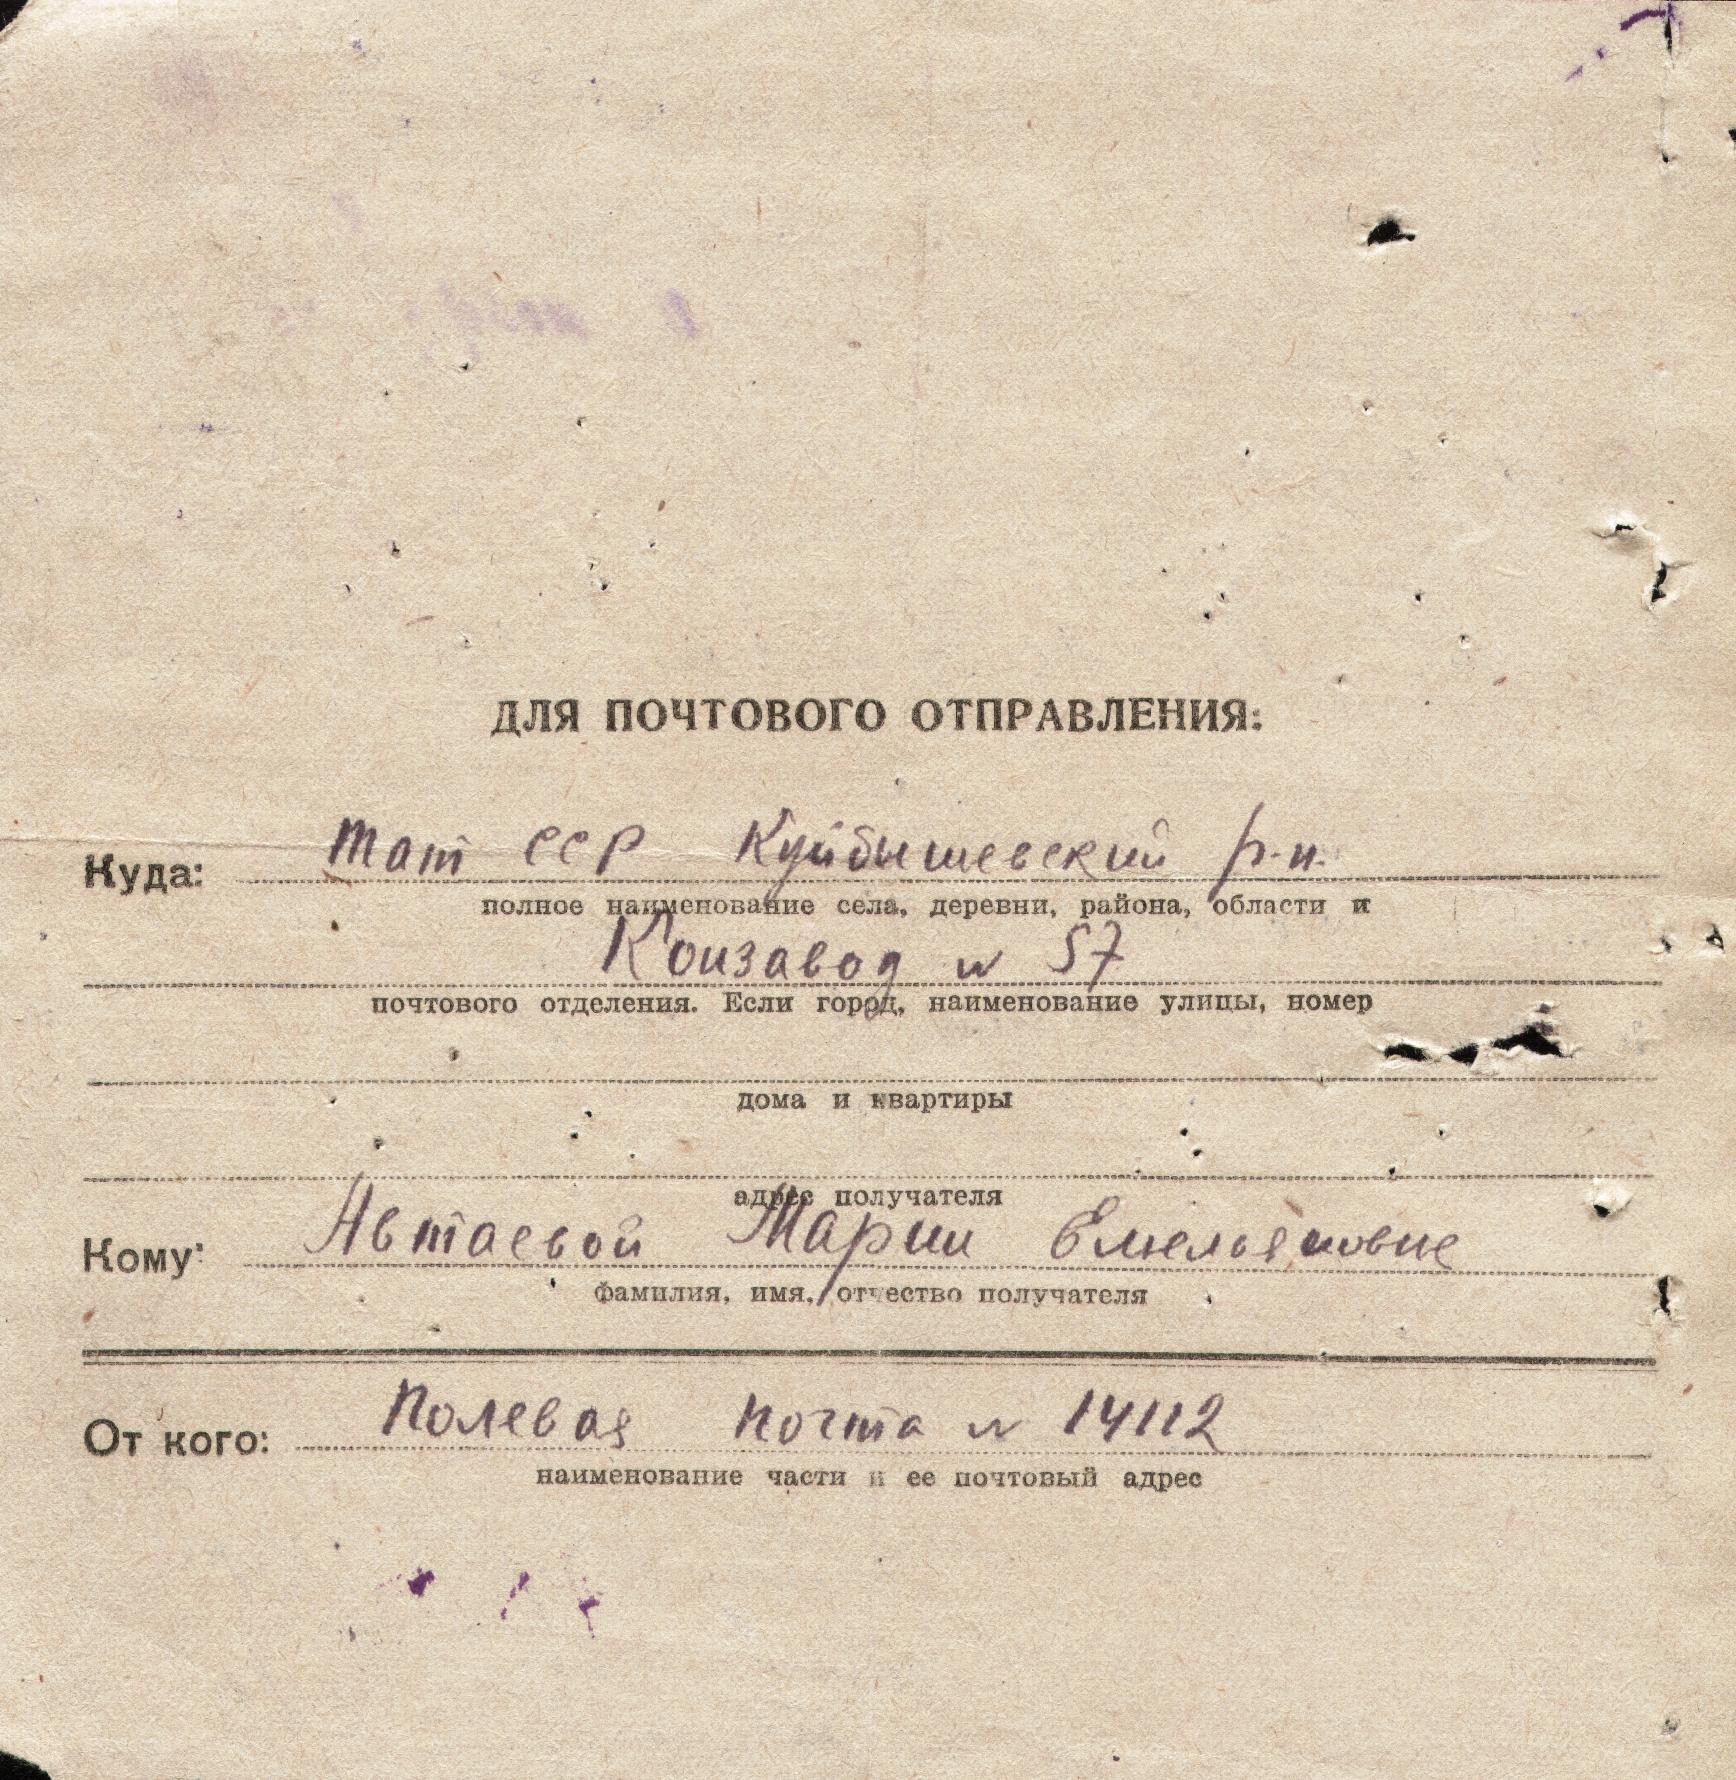 ДЛЯ ПОЧТОВОГО ОТПРАВЛЕНИЯ:
Куда: Тат ССР Куйбышевский р-н.
полное наименование села, деревни, района, области и
Конзавод № 57
почтового отделения. Если город, наименование улицы, номер
дома и квартиры
адрес получателя
Кому: Автаевой Марии Емельяновне
фамилия, имя, отчество получателя
От кого: Полевая почта № 14112
наименование части и ее почтовый адрес